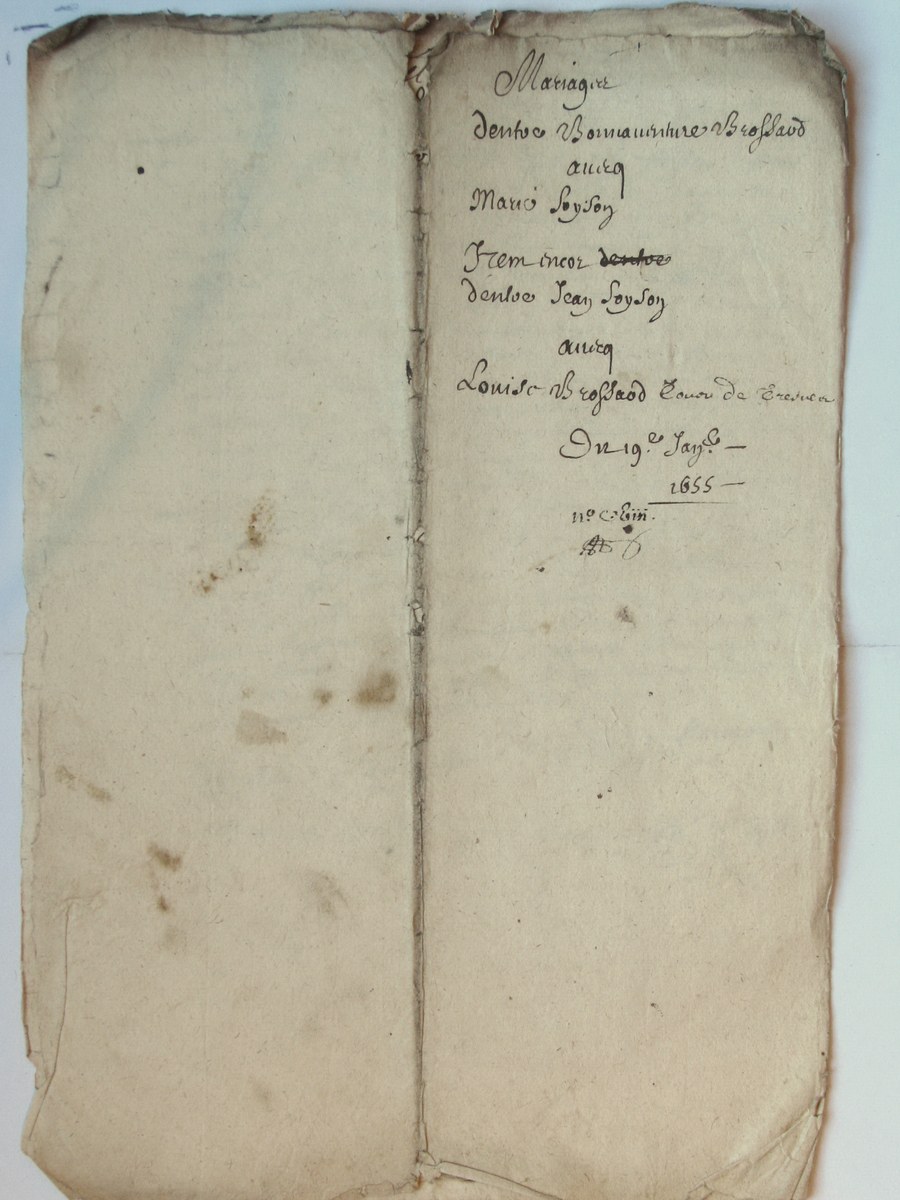 Mariages
dentre Bonnauenture Brossard
auecq
Marie Soyson
Item encor dentre
dentre Jean Soyson
auecq
Louise Brossard de
Du 19e Janer
1655